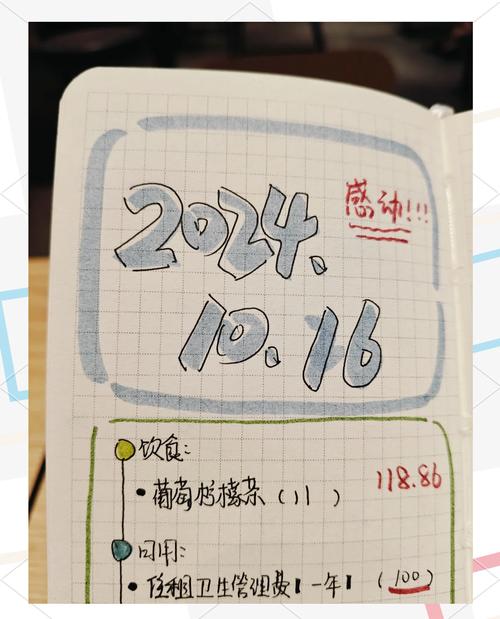 2024.
感动!!!
10.16
饮食:
118.86
• 葡萄柠檬茶 (11)
日用:
• 住租卫生管理费【一年】 (100)